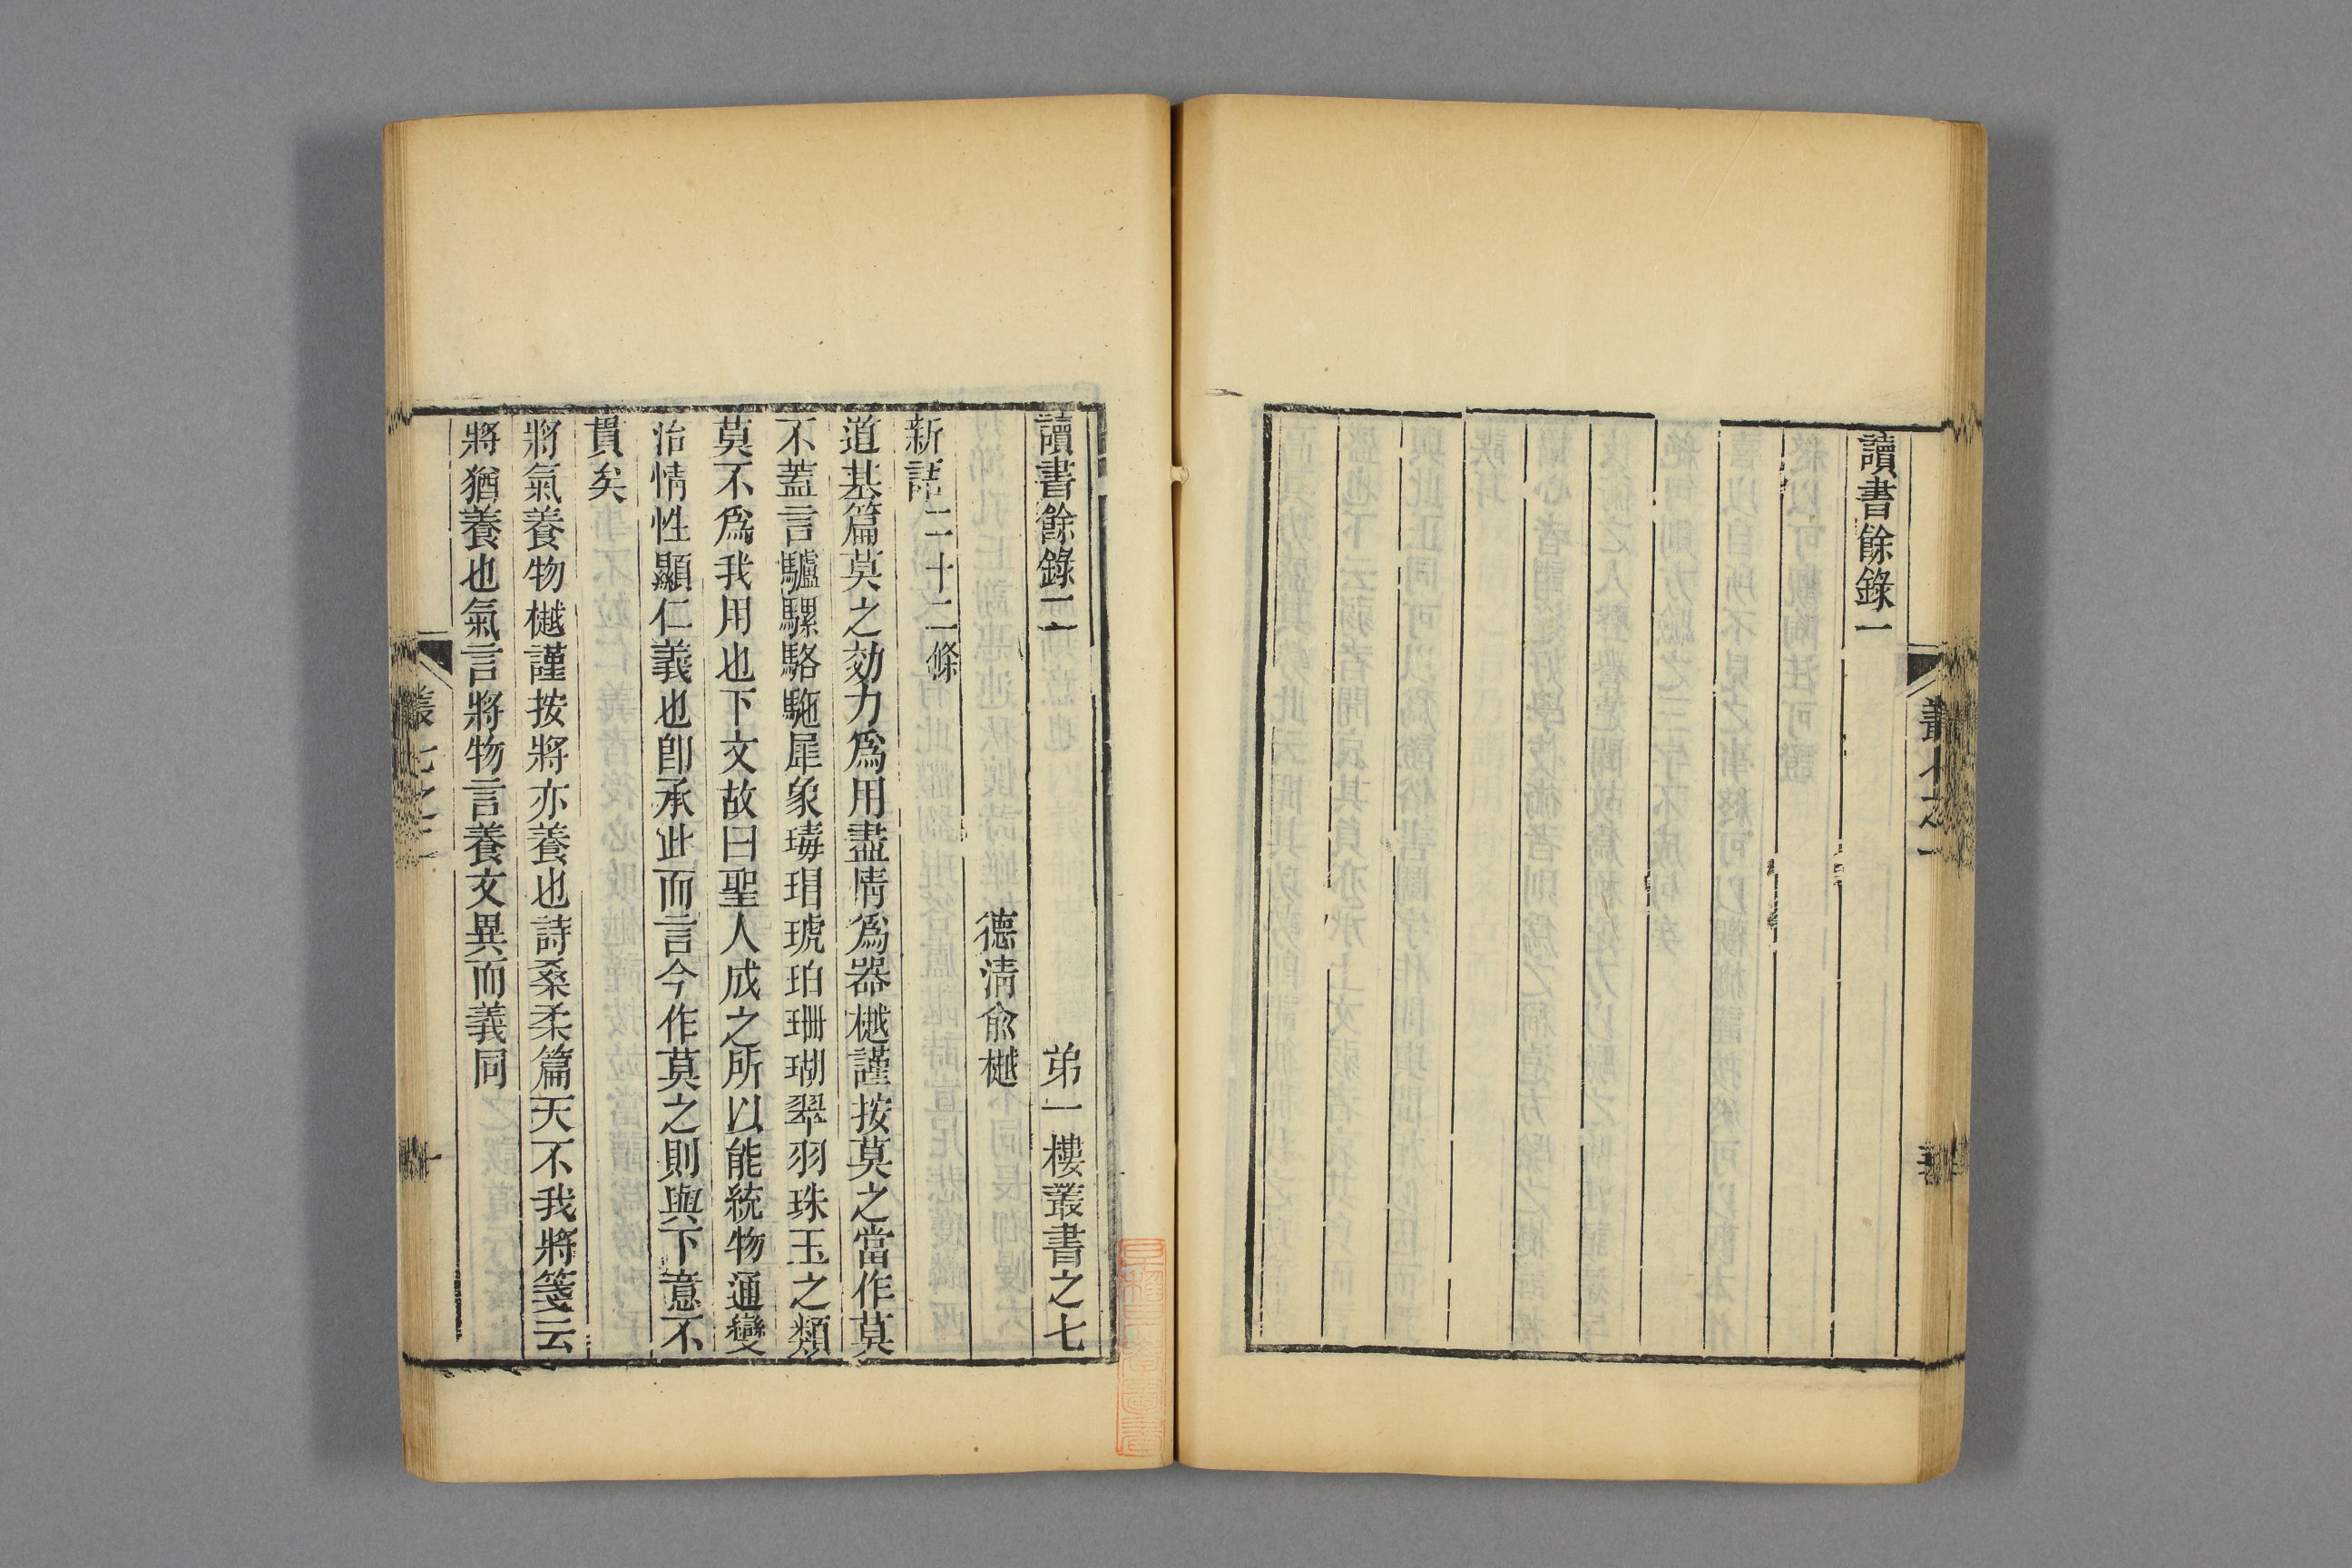 讀書餘錄一
叢七之一
讀書餘錄二 弟一樓叢書之七
德清俞樾
新語二十二條
道基篇莫之効力爲用盡情爲器樾謹按莫之當作莫
不蓋言驢騾駱駞犀象瑇瑁琥珀珊瑚翠羽珠玉之類
莫不爲我用也下文故曰聖人成之所以能統物通變
治情性顯仁義也卽承此而言今作莫之則與下意不
貫矣
將氣養物樾謹按將亦養也詩桑柔篇天不我將箋云
將猶養也氣言將物言養文異而義同
叢七之二